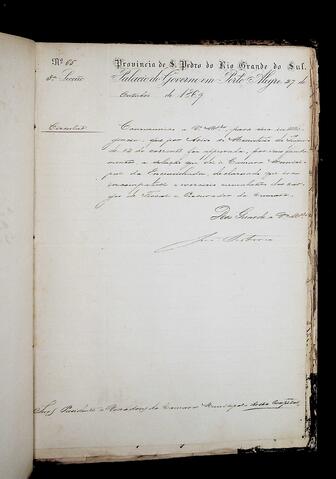 Nº 65 Provincia de S. Pedro do Rio Grande do Sul.
3ª Secção Palacio do Governo em Porto Alegre 27
de Outubro de 1869
Circular
Communico a Vmces para sua intelli-
gencia, que por Aviso do Ministerio do
de 12 do corrente foi approvada, por seus funda-
mentos a solução que dei à Camara Munici-
pal da Encruzilhada, declarando que era
incompativel o exercicio cumulativo dos car-
gos de Fiscal e Procurador da Camara.
Deus Guarde a Vmces
Snres Presidente e Vereadores da Camara Municipal